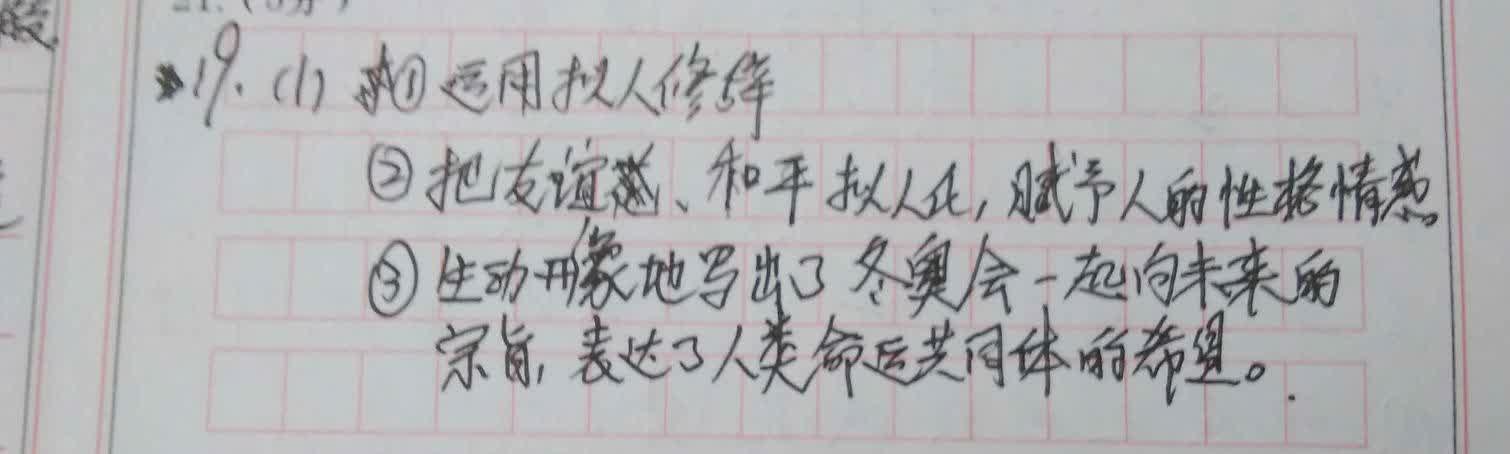 21.(5分)
19.(1)①运用拟人修辞
②把友谊、和平拟人化,赋予人的性格情感
③生动形象地写出了冬奥会一起向未来的
宗旨,表达了人类命运共同体的希望。